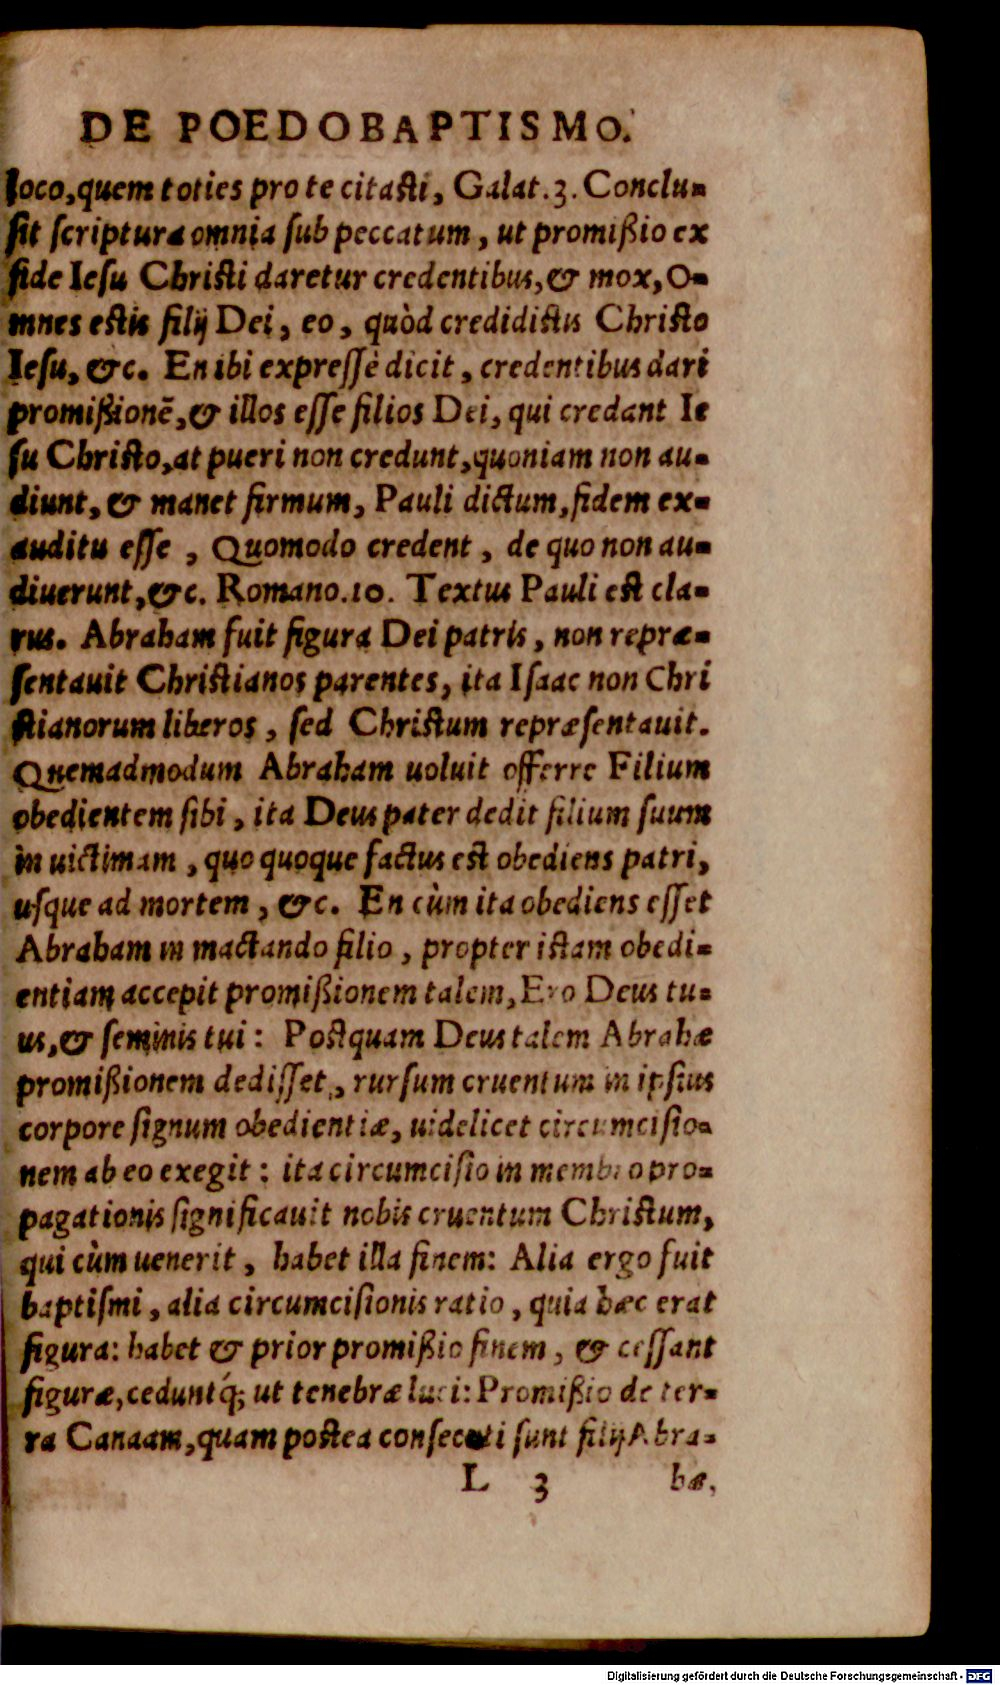 DE POEDOBAPTISMO.
loco, quem toties pro te citasti, Galat.3. Conclu-
sit scriptura omnia sub peccatum, ut promißio ex
fide Iesu Christi daretur credentibus, & mox, O-
mnes estis filij Dei, eo, quòd credidistis Christo
Iesu, &c. En ibi expressè dicit, credentibus dari
promißionē, & illos esse filios Dei, qui credant Ie
su Christo, at pueri non credunt, quoniam non au-
diunt, & manet firmum, Pauli dictum, fidem ex-
auditu esse, Quomodo credent, de quo non au-
diuerunt, &c. Romano.10. Textus Pauli est cla-
rus. Abraham fuit figura Dei patris, non repræ-
sentauit Christianos parentes, ita Isaac non Chri
stianorum liberos, sed Christum repræsentauit.
Quemadmodum Abraham uoluit offerre Filium
obedientem sibi, ita Deus pater dedit filium suum
in uictimam, quo quoque factus est obediens patri,
usque ad mortem, &c. En cùm ita obediens esset
Abraham in mactando filio, propter istam obedi-
entiam accepit promißionem talem, Ero Deus tu-
us, & seminis tui: Postquam Deus talem Abrahæ
promißionem dedisset, rursum cruentum in ipsius
corpore signum obedientiæ, uidelicet circumcisio-
nem ab eo exegit: ita circumcisio in membro pro-
pagationis significauit nobis cruentum Christum,
qui cùm uenerit, habet illa finem: Alia ergo fuit
baptismi, alia circumcisionis ratio, quia hæc erat
figura: habet & prior promißio finem, & cessant
figuræ, ceduntq́; ut tenebræ luci: Promißio de ter-
ra Canaam, quam postea consecuti sunt filij Abra-
L 3 hæ,
Digitalisierung gefördert durch die Deutsche Forschungsgemeinschaft - DFG